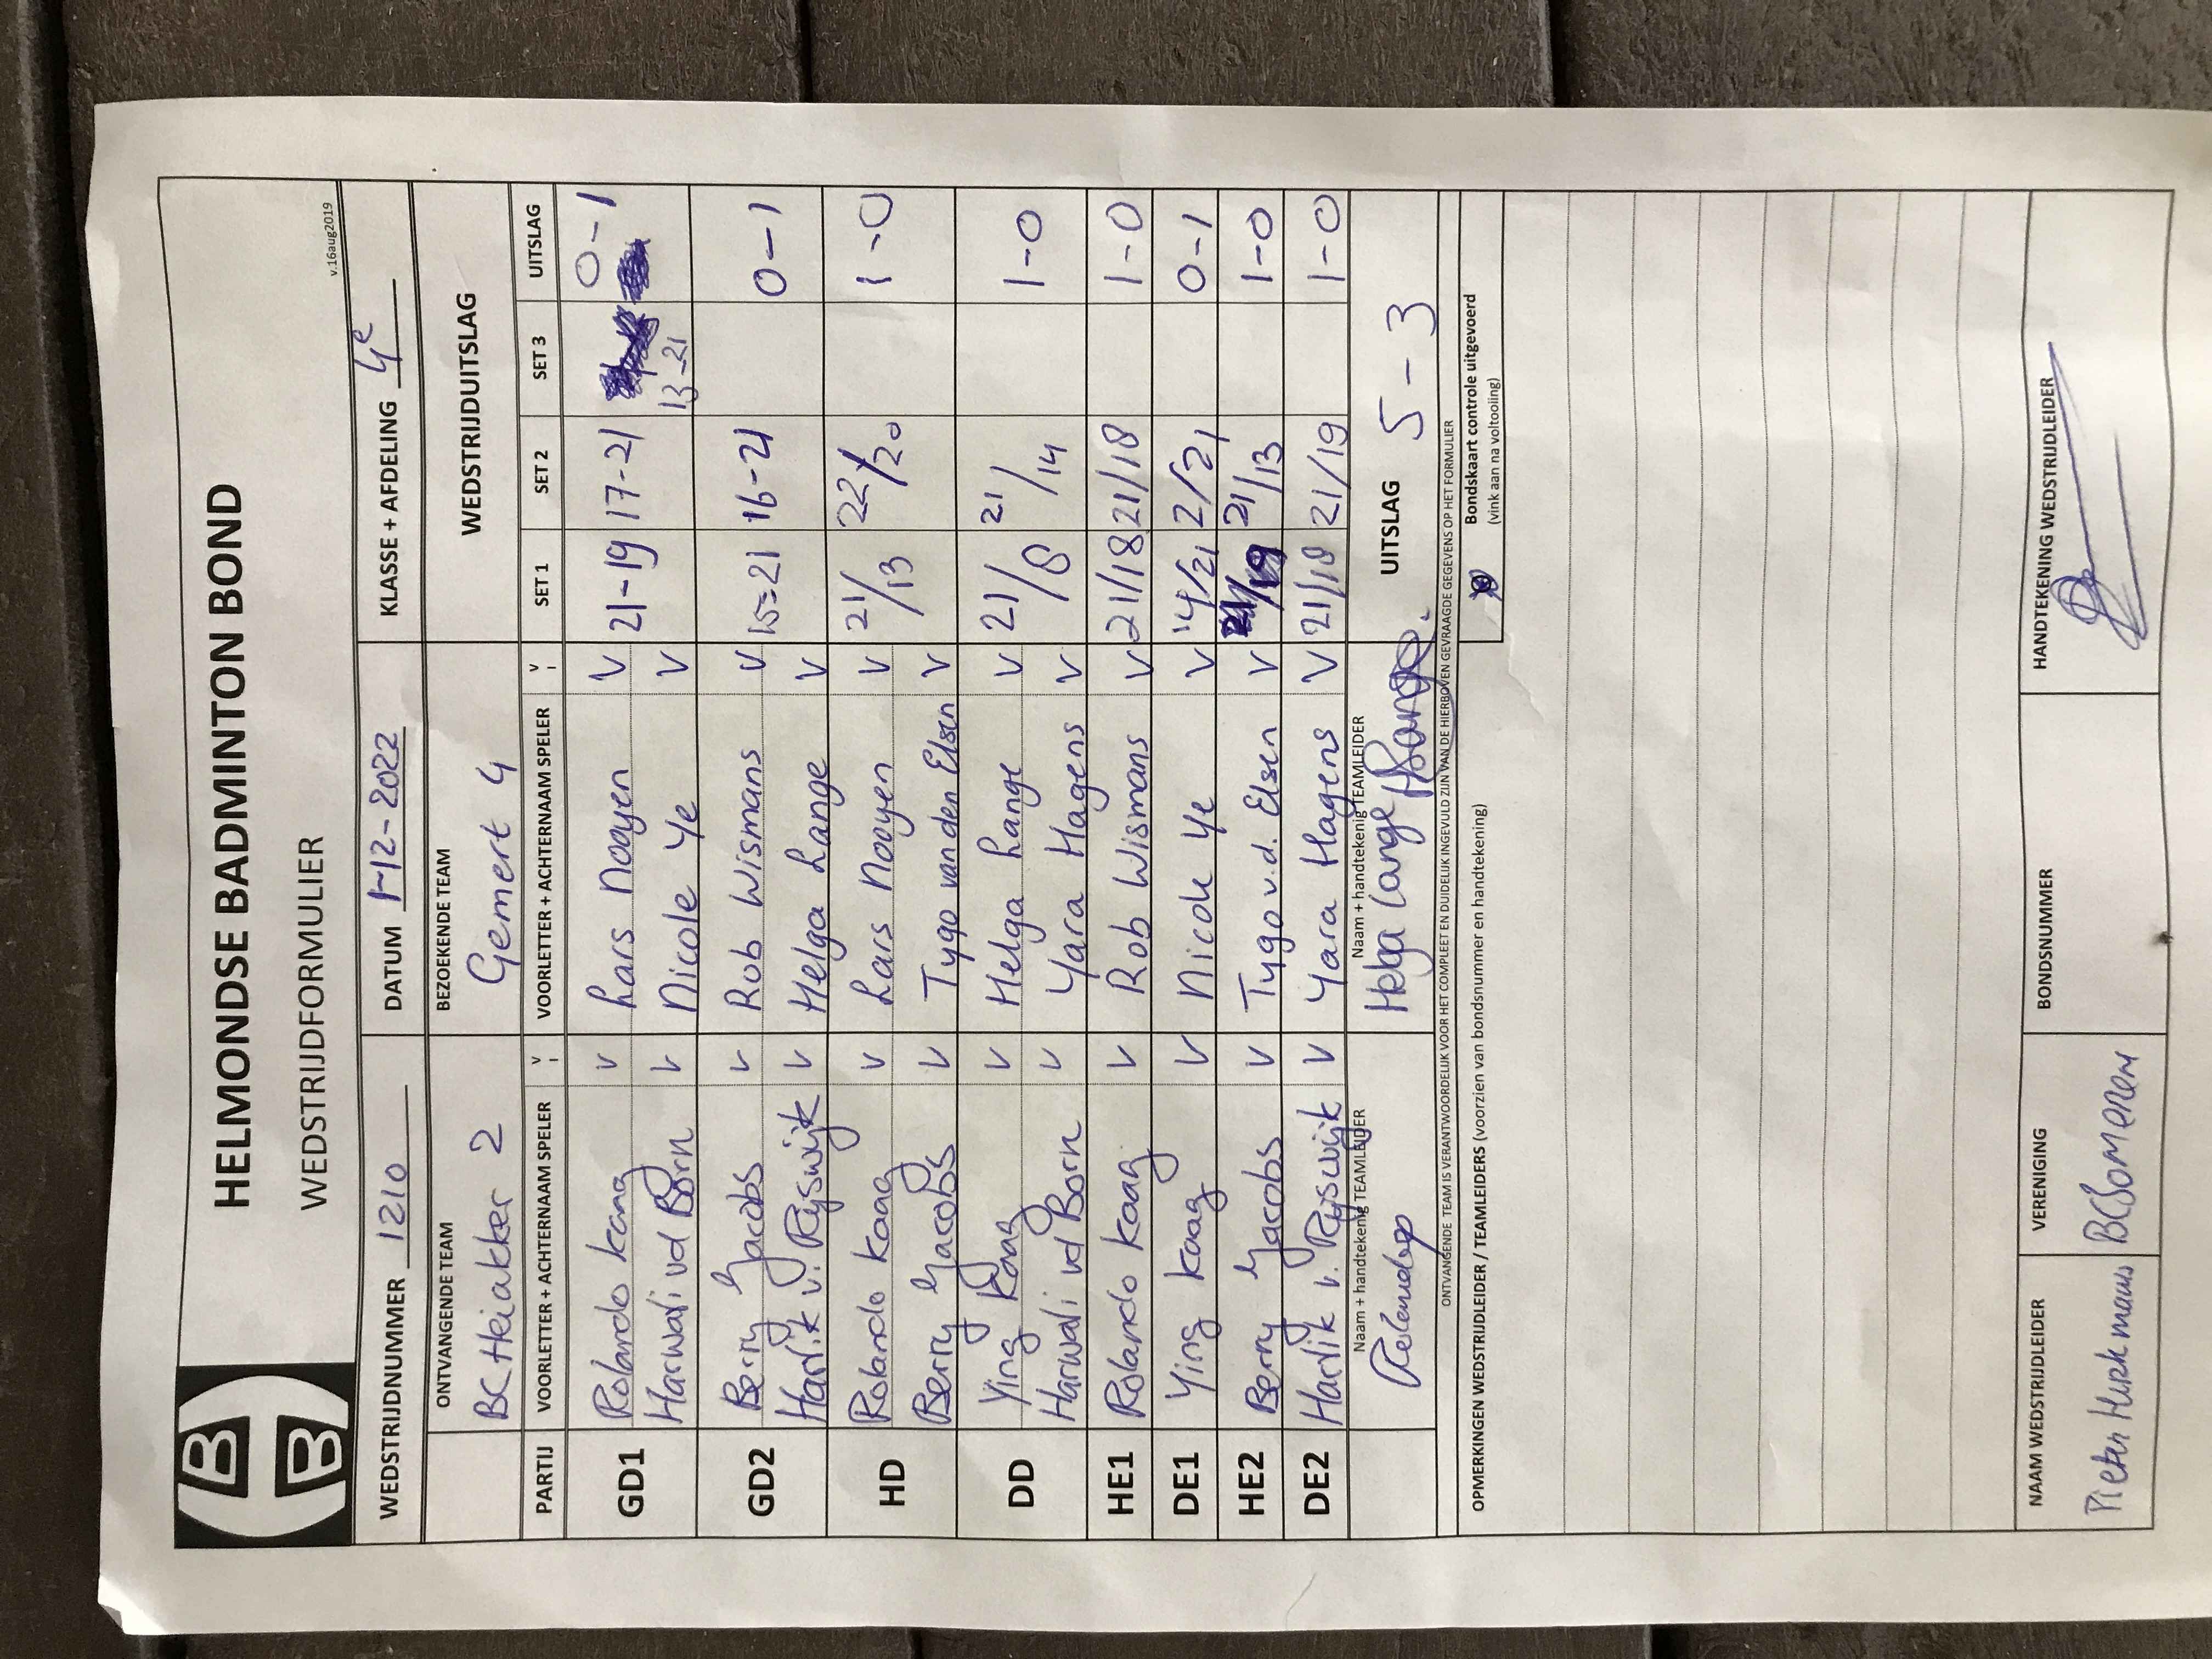 B
B
HELMONDSE BADMINTON BOND
WEDSTRIJDFORMULIER
v.16aug2019
WEDSTRIJDNUMMER 1210 DATUM 1-12-2022 KLASSE + AFDELING 4e
ONTVANGENDE TEAM BEZOEKENDE TEAM WEDSTRIJDUITSLAG
BC Heiakker 2 Gemert 4
PARTIJ VOORLETTER + ACHTERNAAM SPELER V VOORLETTER + ACHTERNAAM SPELER V SET 1 SET 2 SET 3 UITSLAG
GD1 Rolando Kaag V Lars Nooyen V 21-19 17-21 13-21 0-1
Harwali vd Born V Nicole Ye V
GD2 Berry Jacobs V Rob Wismans V 15=21 16-21 0-1
Hardik v. Rijswijk V Helga Lange V
HD Rolando Kaag V Lars Nooyen V 21/13 22/20 1-0
Berry Jacobs V Tygo van den Elsen V
DD Ying Kaag V Helga Lange V 21/8 21/14 1-0
Harwali vd Born V Yara Hagens V
HE1 Rolando Kaag V Rob Wismans V 21/18 21/18 1-0
DE1 Ying Kaag V Nicole Ye V 14/21 2/21 0-1
HE2 Berry Jacobs V Tygo v.d. Elsen V 21/19 21/13 1-0
DE2 Hardik v. Rijswijk V Yara Hagens V 21/18 21/19 1-0
Naam + handtekenig TEAMLEIDER Naam + handtekenig TEAMLEIDER UITSLAG 5-3
Helga Lange
ONTVANGENDE TEAM IS VERANTWOORDELIJK VOOR HET COMPLEET EN DUIDELIJK INGEVULD ZIJN VAN DE HIERBOVEN GEVRAAGDE GEGEVENS OP HET FORMULIER
OPMERKINGEN WEDSTRIJDLEIDER / TEAMLEIDERS (voorzien van bondsnummer en handtekening)
Bondskaart controle uitgevoerd
(vink aan na voltooiing)
NAAM WEDSTRIJDLEIDER VERENIGING BONDSNUMMER HANDTEKENING WEDSTRIJDLEIDER
Pieter Hurkmans BCSomeren